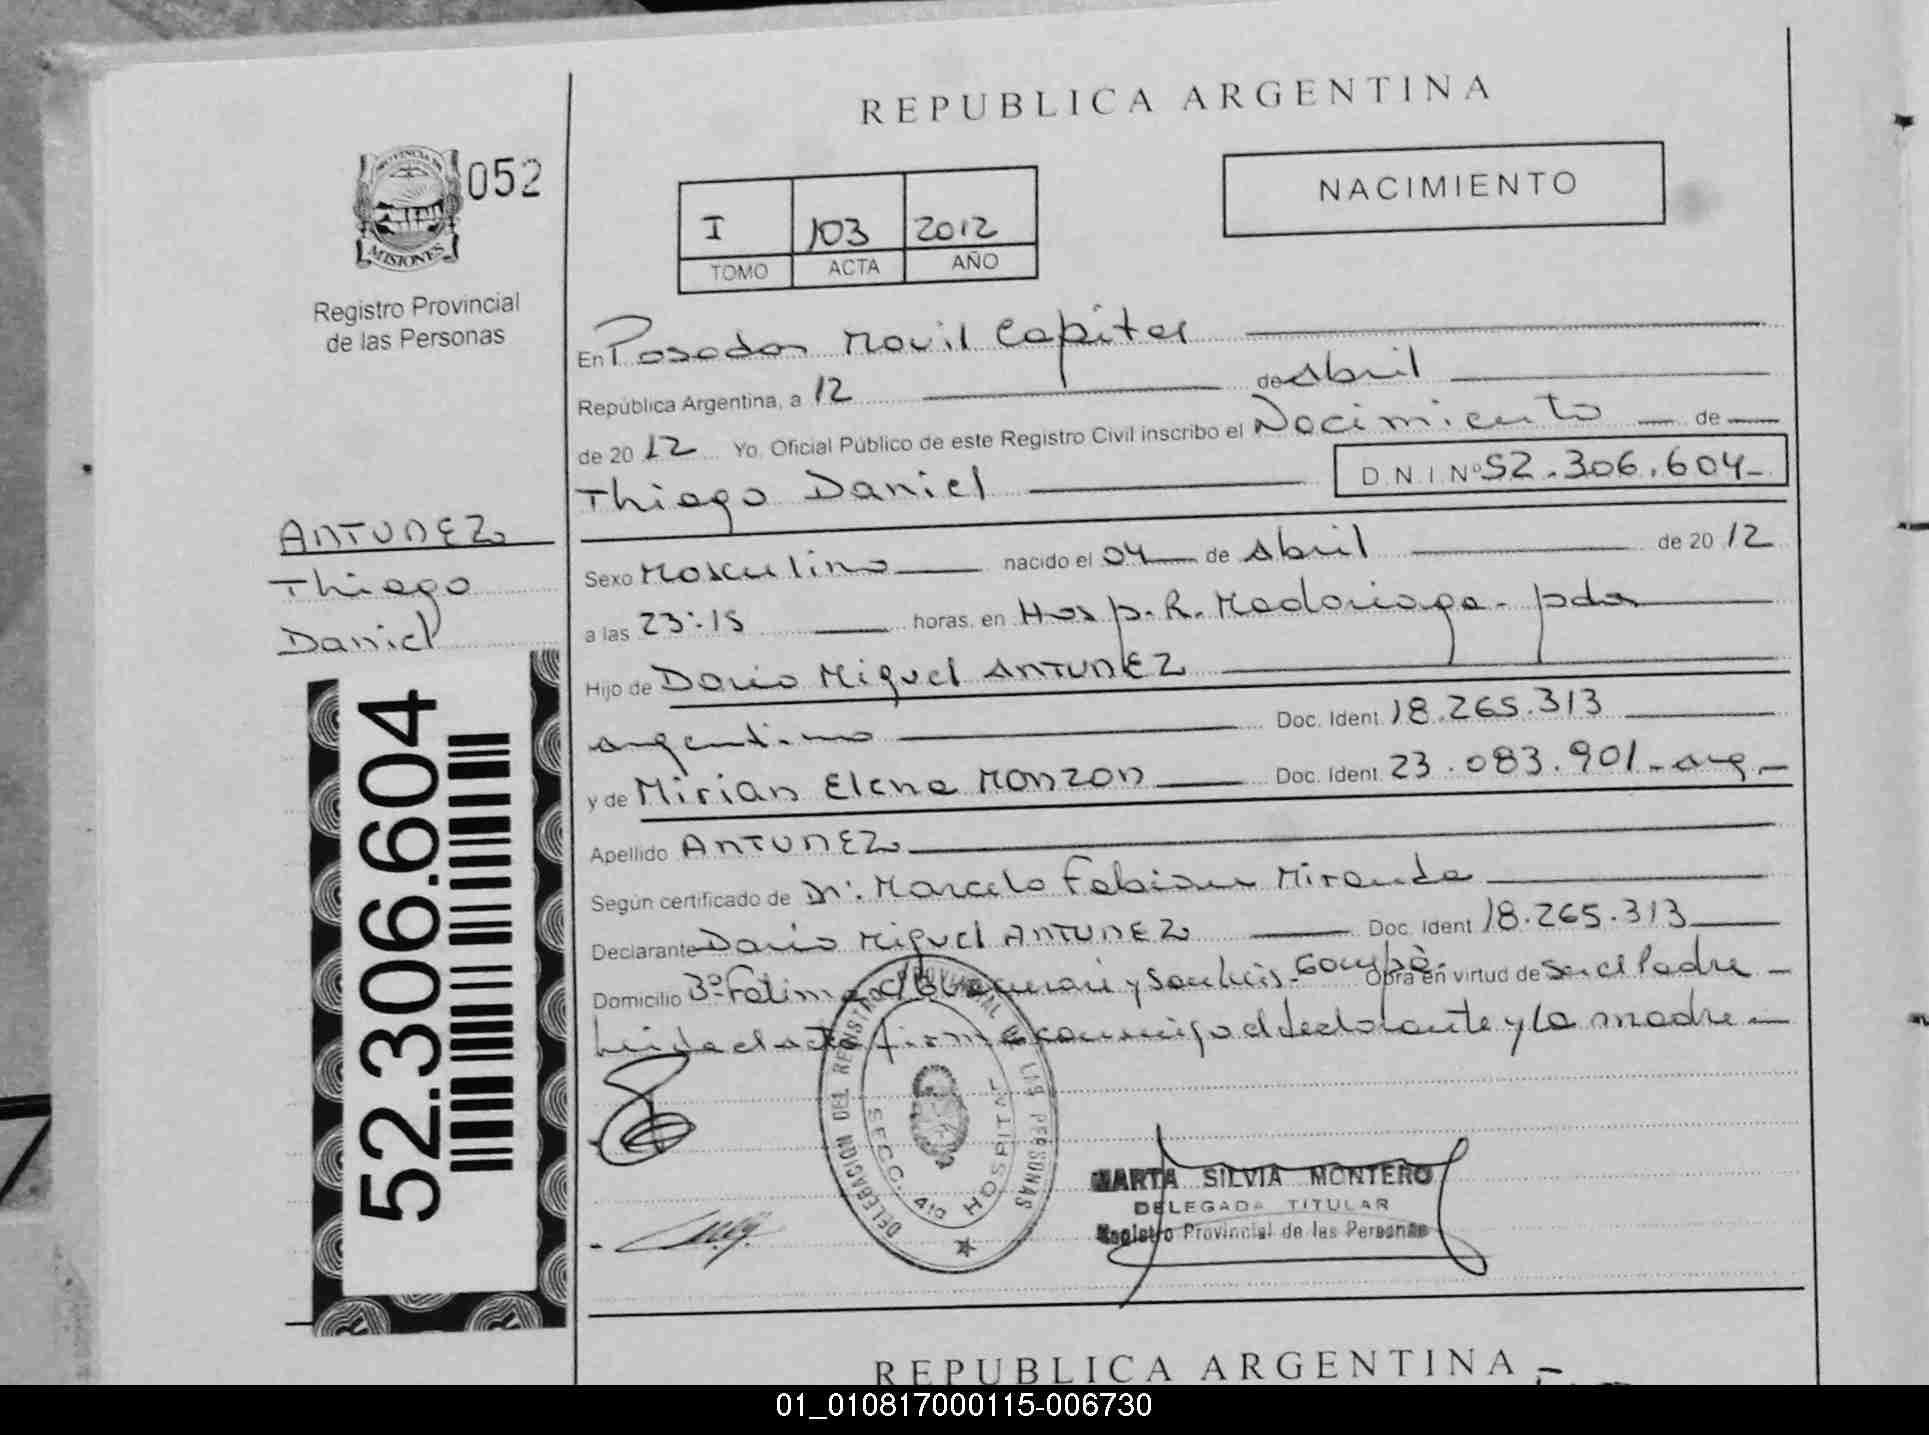 REPUBLICA ARGENTINA
PROVINCIA DE
MISIONES
052
Registro Provincial
de las Personas
NACIMIENTO
I 103 2012
TOMO ACTA AÑO
En Posadas Movil Capital
República Argentina, a 12 de Abril
de 2012 Yo, Oficial Público de este Registro Civil inscribo el Nacimiento de
Thiago Daniel D.N.I Nº 52.306.604
ANTUNEZ
Thiago
Daniel
Sexo Masculino nacido el 04 de Abril de 2012
a las 23:15 horas, en Hosp. R. Madariaga - pdas
Hijo de Dario Miguel ANTUNEZ
argentino Doc. Ident. 18.265.313
y de Mirian Elena MONZON Doc. Ident. 23.083.901 - arg -
Apellido ANTUNEZ
Según certificado de Dr. Marcelo Fabian Miranda
Declarante Dario Miguel ANTUNEZ Doc. Ident 18.265.313
Domicilio Bº Fatima y San Luis - Garupá - Obra en virtud de Ser el Padre -
Leida el acta firma conmigo el declarante y la madre -
52.306.604
DELEGACION DEL REGISTRO PROVINCIAL DE LAS PERSONAS
SECC. 4ta HOSPITAL
MARTA SILVIA MONTERO
DELEGADA TITULAR
Registro Provincial de las Personas
REPUBLICA ARGENTINA
01_010817000115-006730